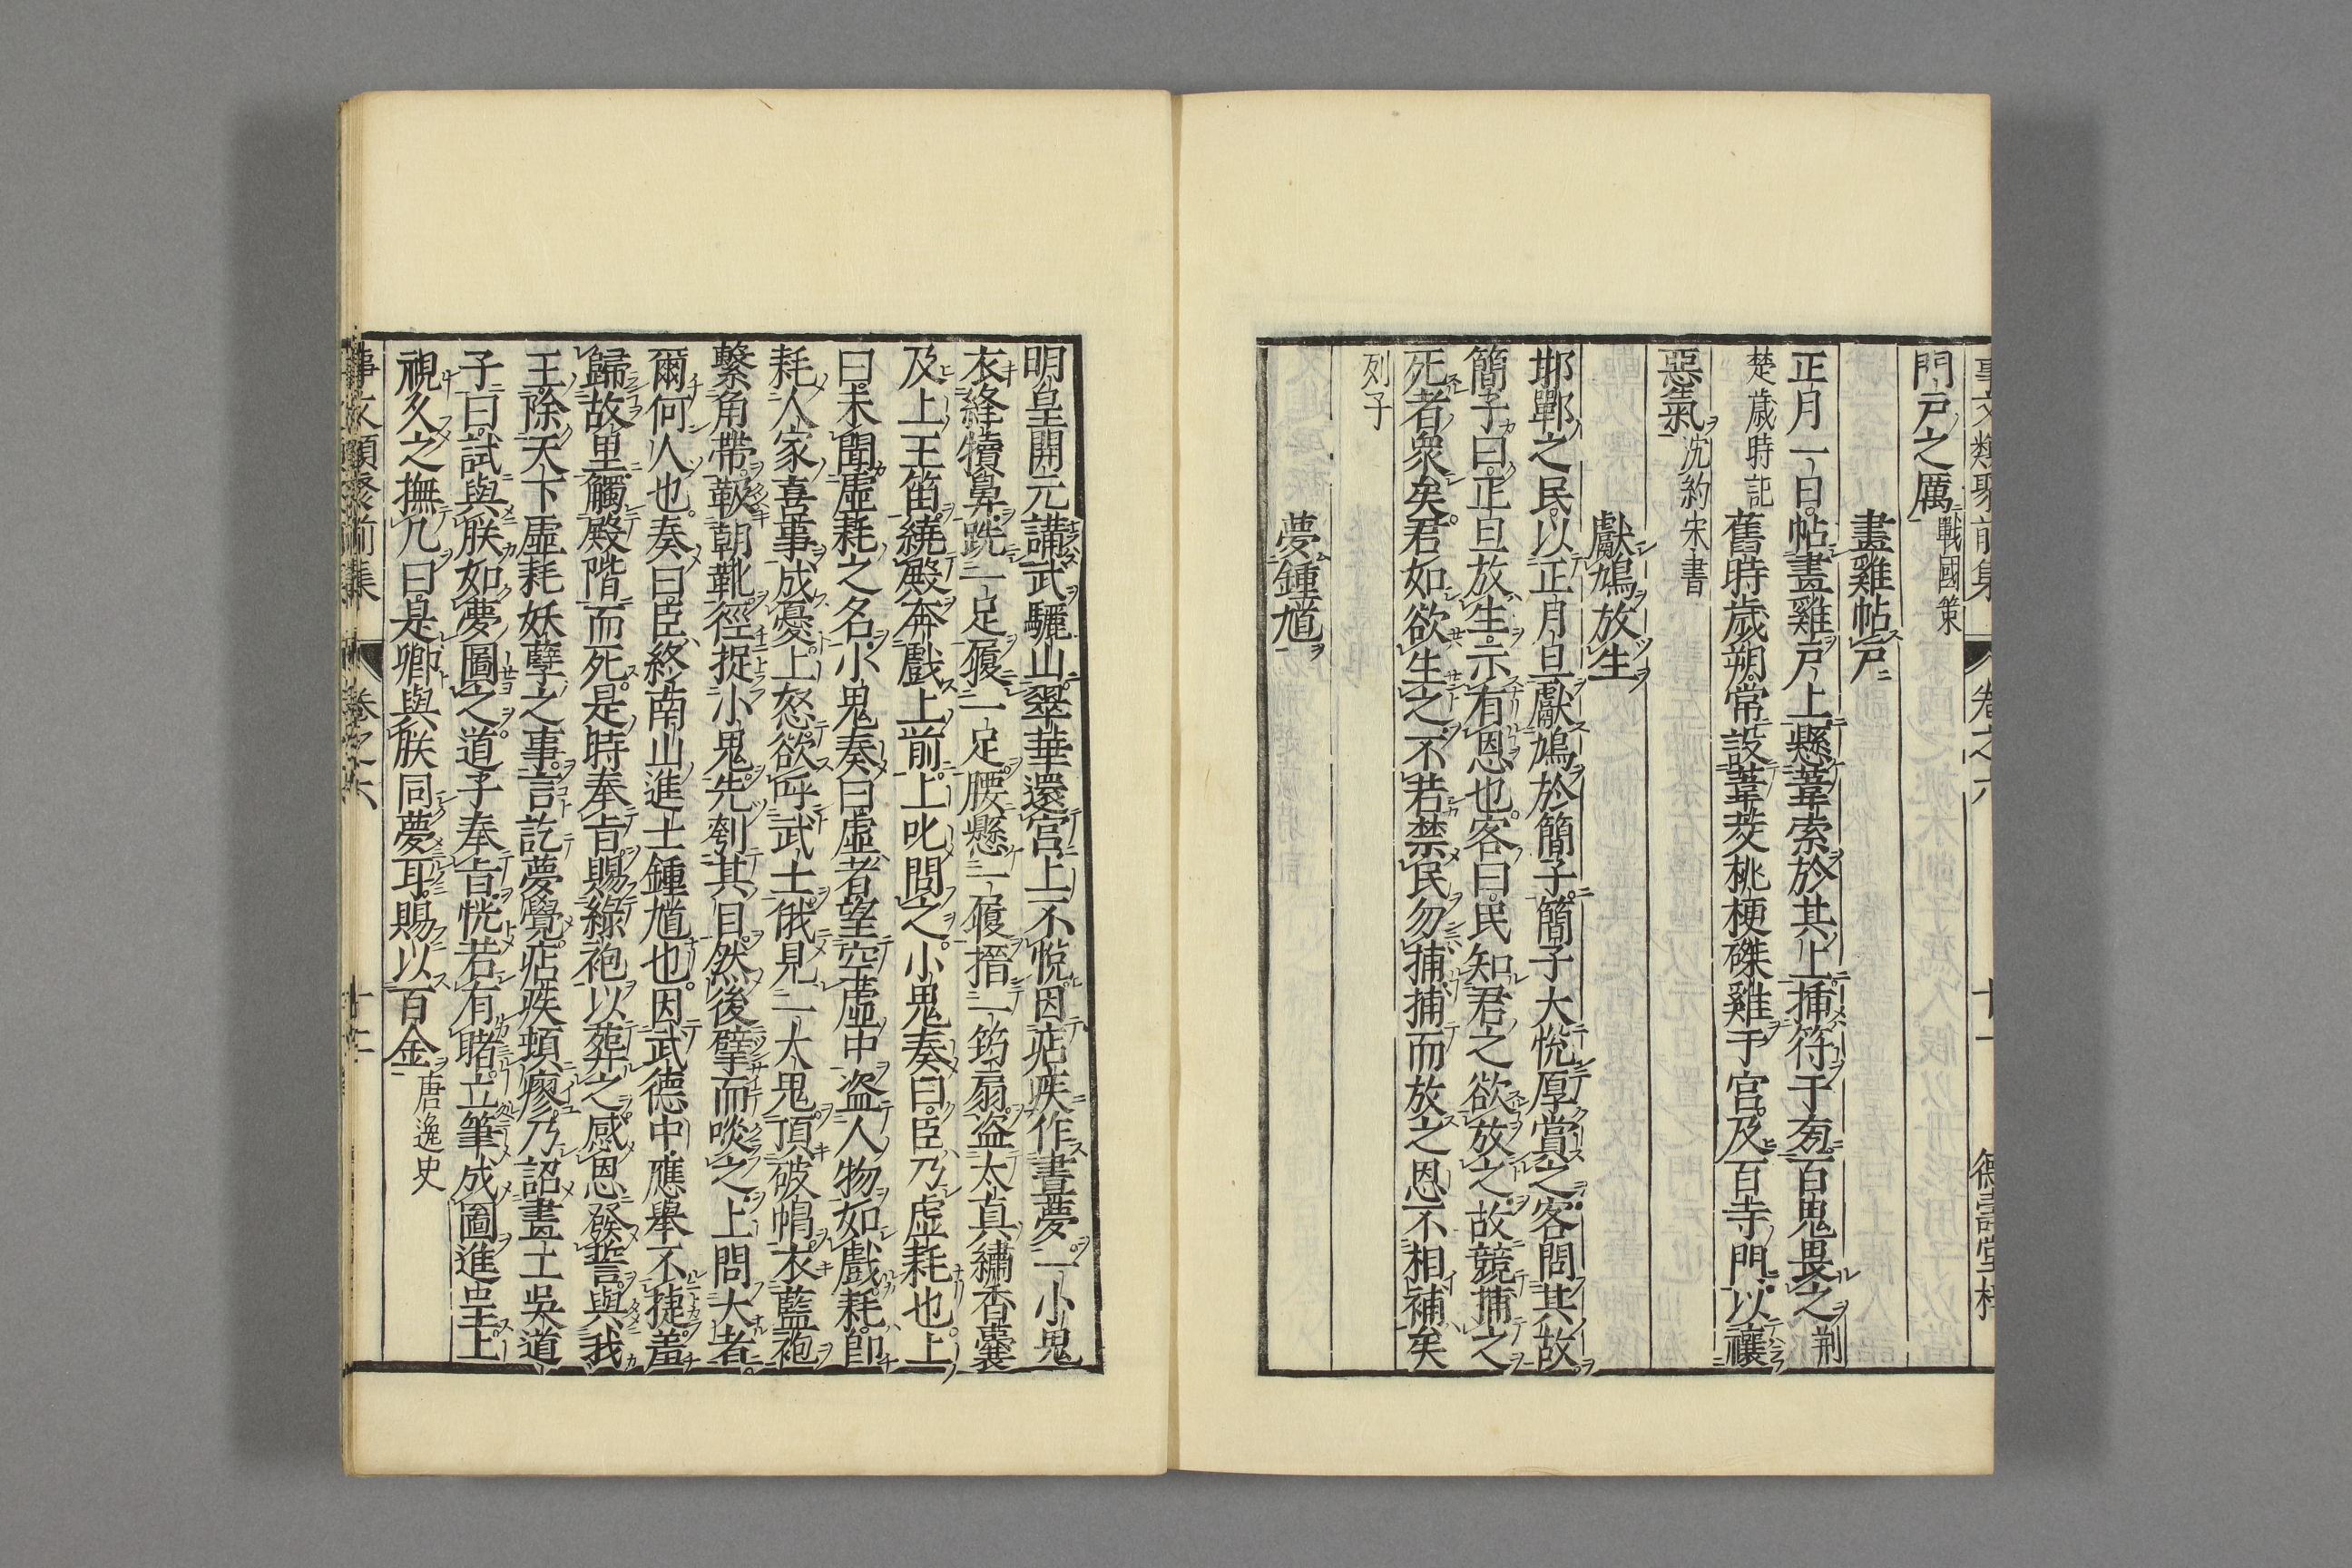 事文類聚前集 卷之六 十一 德壽堂梓
門戸之厲戰國策
畫雞帖戸
正月一日帖畫雞戸上懸葦索於其上挿符于旁百鬼畏之荆
楚歳時記 舊時歳朔常設葦茭桃梗磔雞于宮及百寺門以禳
惡氣沈約宋書
獻鳩放生
邯鄲之民以正月旦獻鳩於簡子簡子大悅厚賞之客問其故
簡子曰正旦放生示有恩也客曰民知君之欲放之故競捕之
死者衆矣君如欲生之不若禁民勿捕捕而放之恩不相補矣
列子
夢鍾馗
明皇開元講武驪山翠華還宮上不悅因痁疾作晝夢一小鬼
衣絳犢鼻跣一足履一足腰懸一履搢一筠扇盗太真繡香囊
及上玉笛繞殿奔戲上前上叱問之小鬼奏曰臣乃虚耗也上
曰未聞虚耗之名小鬼奏曰虚者望空虚中盗人物如戲耗即
耗人家喜事成憂上怒欲呼武士俄見一大鬼頂破帽衣藍袍
繫角帶靸朝靴徑捉小鬼先刳其目然後擘而啖之上問大者
爾何人也奏曰臣終南山進士鍾馗也因武德中應舉不捷羞
歸故里觸殿階而死是時奉旨賜綠袍以葬之感恩發誓與我
王除天下虚耗妖孽之事言訖夢覺痁疾頓瘳乃詔畫士吳道
子曰試與朕如夢圖之道子奉旨恍若有睹立筆成圖進呈上
視久之撫几曰是卿與朕同夢耳賜以百金唐逸史
事文類聚前集 卷之六